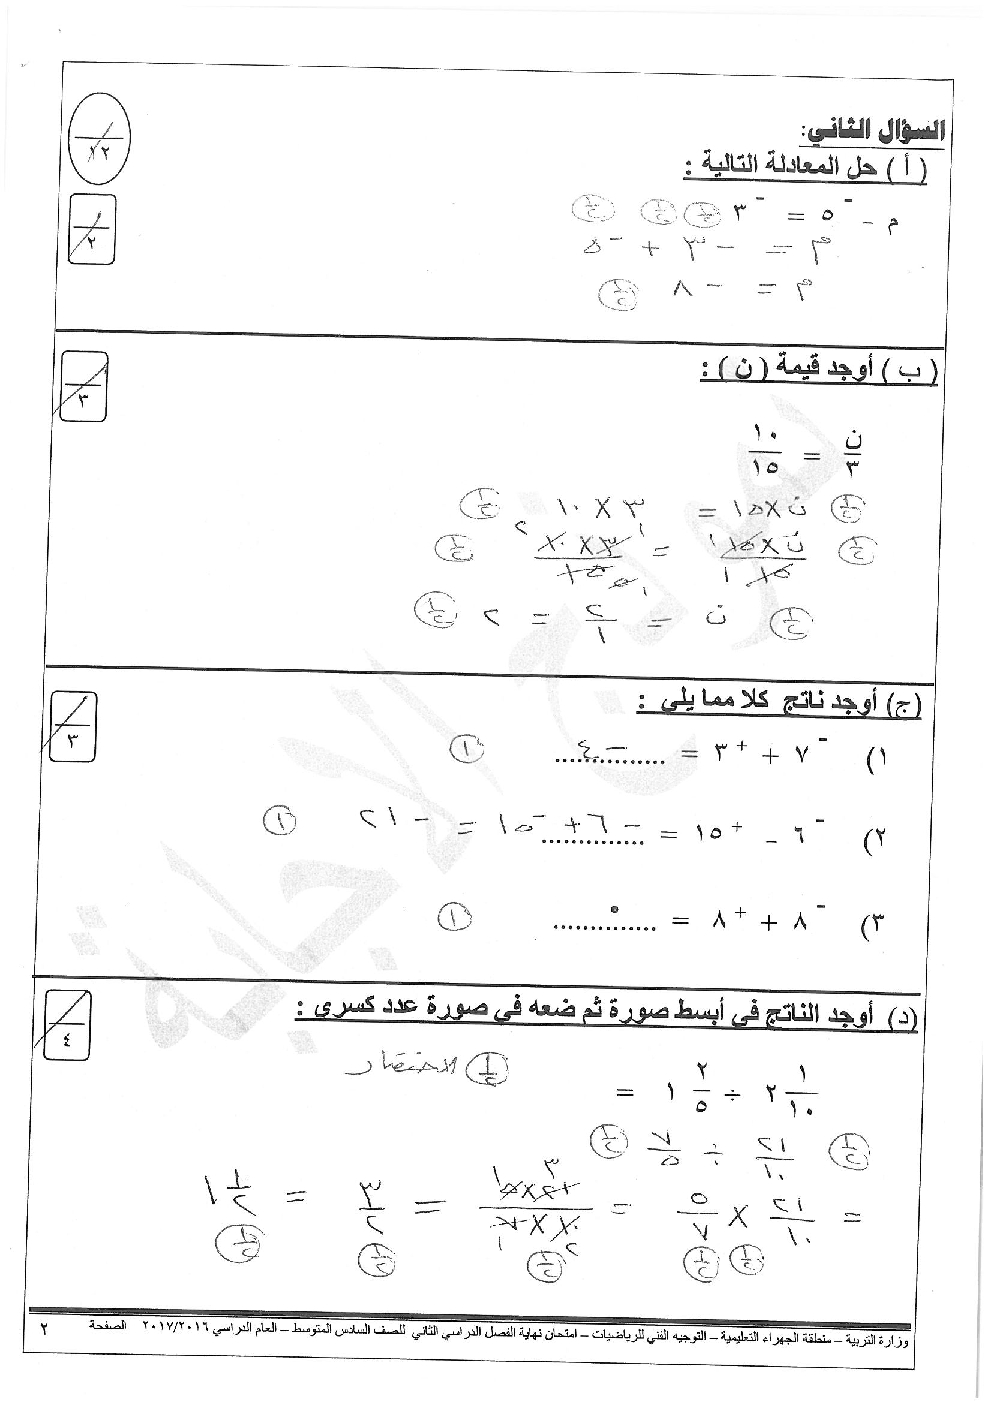 السؤال الثاني:
١٢
( أ ) حل المعادلة التالية :
٢
م - ⁻٥ = ⁻٣ ½ ½ ½
م = -٣ + ⁻٥
م = -٨ ½
( ب ) أوجد قيمة ( ن ) :
٣
ن/٣ = ١٠/١٥
½ ن×١٥ = ٣ × ١٠ ½
½ ن×١٥/١٥ = ٣×١٠/١٥ ½
½ ن = ٢/١ = ٢ ½
(ج) أوجد ناتج كلا مما يلي :
٣
١) ⁻٧ + ⁺٣ = ...⁻٤... ١
٢) ⁻٦ - ⁺١٥ = ⁻٦ + ⁻١٥ = -٢١ ١
٣) ⁻٨ + ⁺٨ = ...٠... ١
(د) أوجد الناتج في أبسط صورة ثم ضعه في صورة عدد كسرى :
٤
٢ ١/١٠ ÷ ١ ٢/٥ = ½ الاختصار
½ ٢١/١٠ ÷ ٧/٥ ½
= ٢١/١٠ × ٥/٧ = ٢١×٥/١٠×٧ = ٣/٢ = ١ ½
½ ½ ½ ½ ½
وزارة التربية – منطقة الجهراء التعليمية – التوجيه الفني للرياضيات – امتحان نهاية الفصل الدراسي الثاني للصف السادس المتوسط – العام الدراسي ٢٠١٧/٢٠١٦ الصفحة ٢
نموذج الاجابة